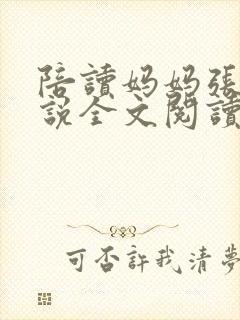 陪讀妈妈張
説全文閱讀
可否許我清夢